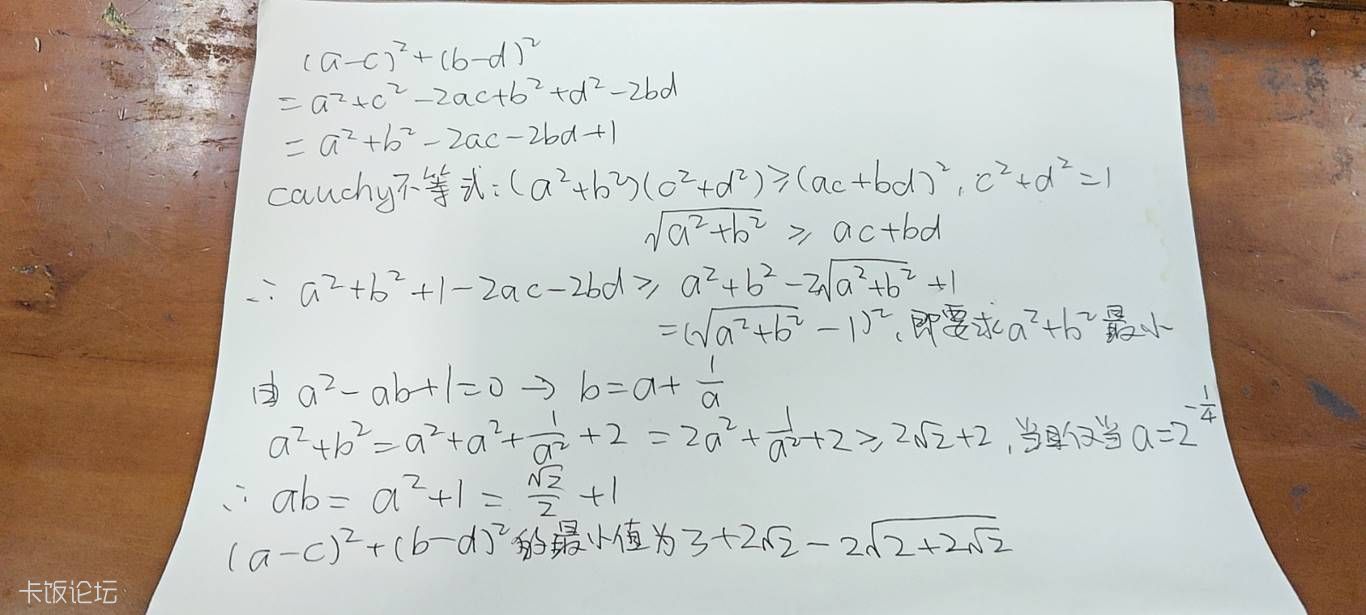 (a-c)²+(b-d)²
=a²+c²-2ac+b²+d²-2bd
=a²+b²-2ac-2bd+1
cauchy不等式:(a²+b²)(c²+d²)≥(ac+bd)², c²+d²=1
√(a²+b²) ≥ ac+bd
∴ a²+b²+1-2ac-2bd≥ a²+b²-2√(a²+b²)+1
=(√(a²+b²)-1)²,即要求a²+b²最小
由 a²-ab+1=0 → b=a+1/a
a²+b²=a²+a²+1/a²+2 =2a²+1/a²+2≥2√2+2,当且仅当a=2^(-1/4)
∴ ab= a²+1 = √2/2 +1
(a-c)²+(b-d)²的最小值为3+2√2-2√(2+2√2)
卡饭论坛